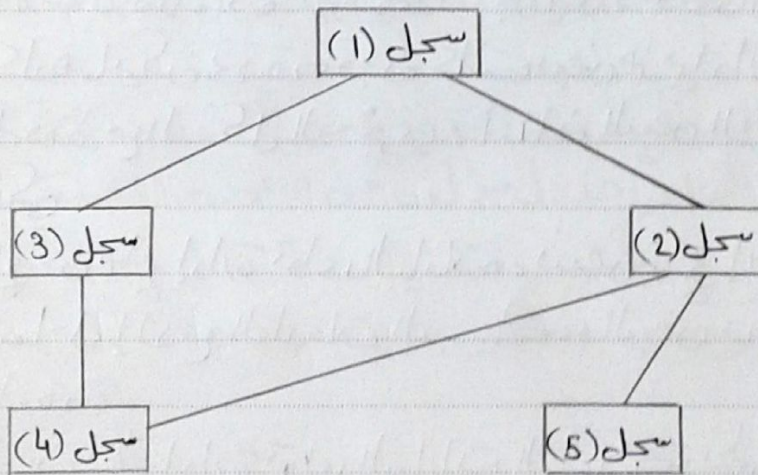 سجل (1)
سجل (2)
سجل (3)
سجل (5)
سجل (4)